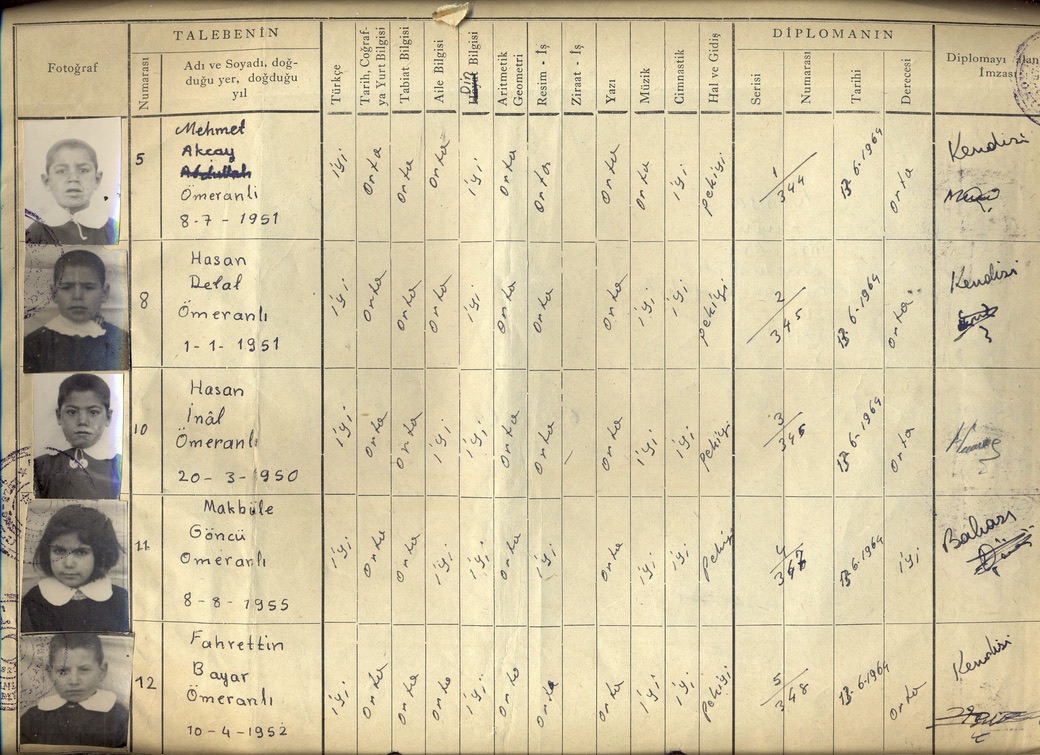 TALEBENİN
DİPLOMANIN
Fotoğraf
Numarası
Adı ve Soyadı, doğ-
duğu yer, doğduğu
yıl
Türkçe
Tarih, Coğraf-
ya Yurt Bilgisi
Tabiat Bilgisi
Aile Bilgisi
Din Bilgisi
Aritmetik
Geometri
Resim - İş
Ziraat - İş
Yazı
Müzik
Cimnastik
Hal ve Gidiş
Serisi
Numarası
Tarihi
Derecesi
Diplomayı alan
İmzası
5
Mehmet
Akcay
Abdullah
Ömeranli
8-7-1951
iyi
Orta
Orta
Orta
iyi
Orta
Orta
Orta
Orta
iyi
Pekiyi
1/344
13-6-1964
Orta
Kendisi
8
Hasan
Delal
Ömeranlı
1-1-1951
iyi
Orta
Orta
Orta
iyi
Orta
Orta
Orta
iyi
iyi
Pekiyi
2/345
13-6-1964
Orta
Kendisi
10
Hasan
İnâl
Ömeranlı
20-3-1950
iyi
Orta
Orta
iyi
iyi
Orta
Orta
Orta
iyi
iyi
Pekiyi
3/346
13-6-1964
Orta
11
Makbüle
Göncü
Omeranlı
8-8-1955
iyi
Orta
Orta
iyi
iyi
Orta
iyi
Orta
iyi
iyi
Pekiyi
4/347
13-6-1964
iyi
Babası
12
Fahrettin
Bayar
Ömeranlı
10-4-1952
iyi
Orta
Orta
Orta
iyi
Orta
Orta
Orta
iyi
iyi
Pekiyi
5/348
13-6-1964
Orta
Kendisi